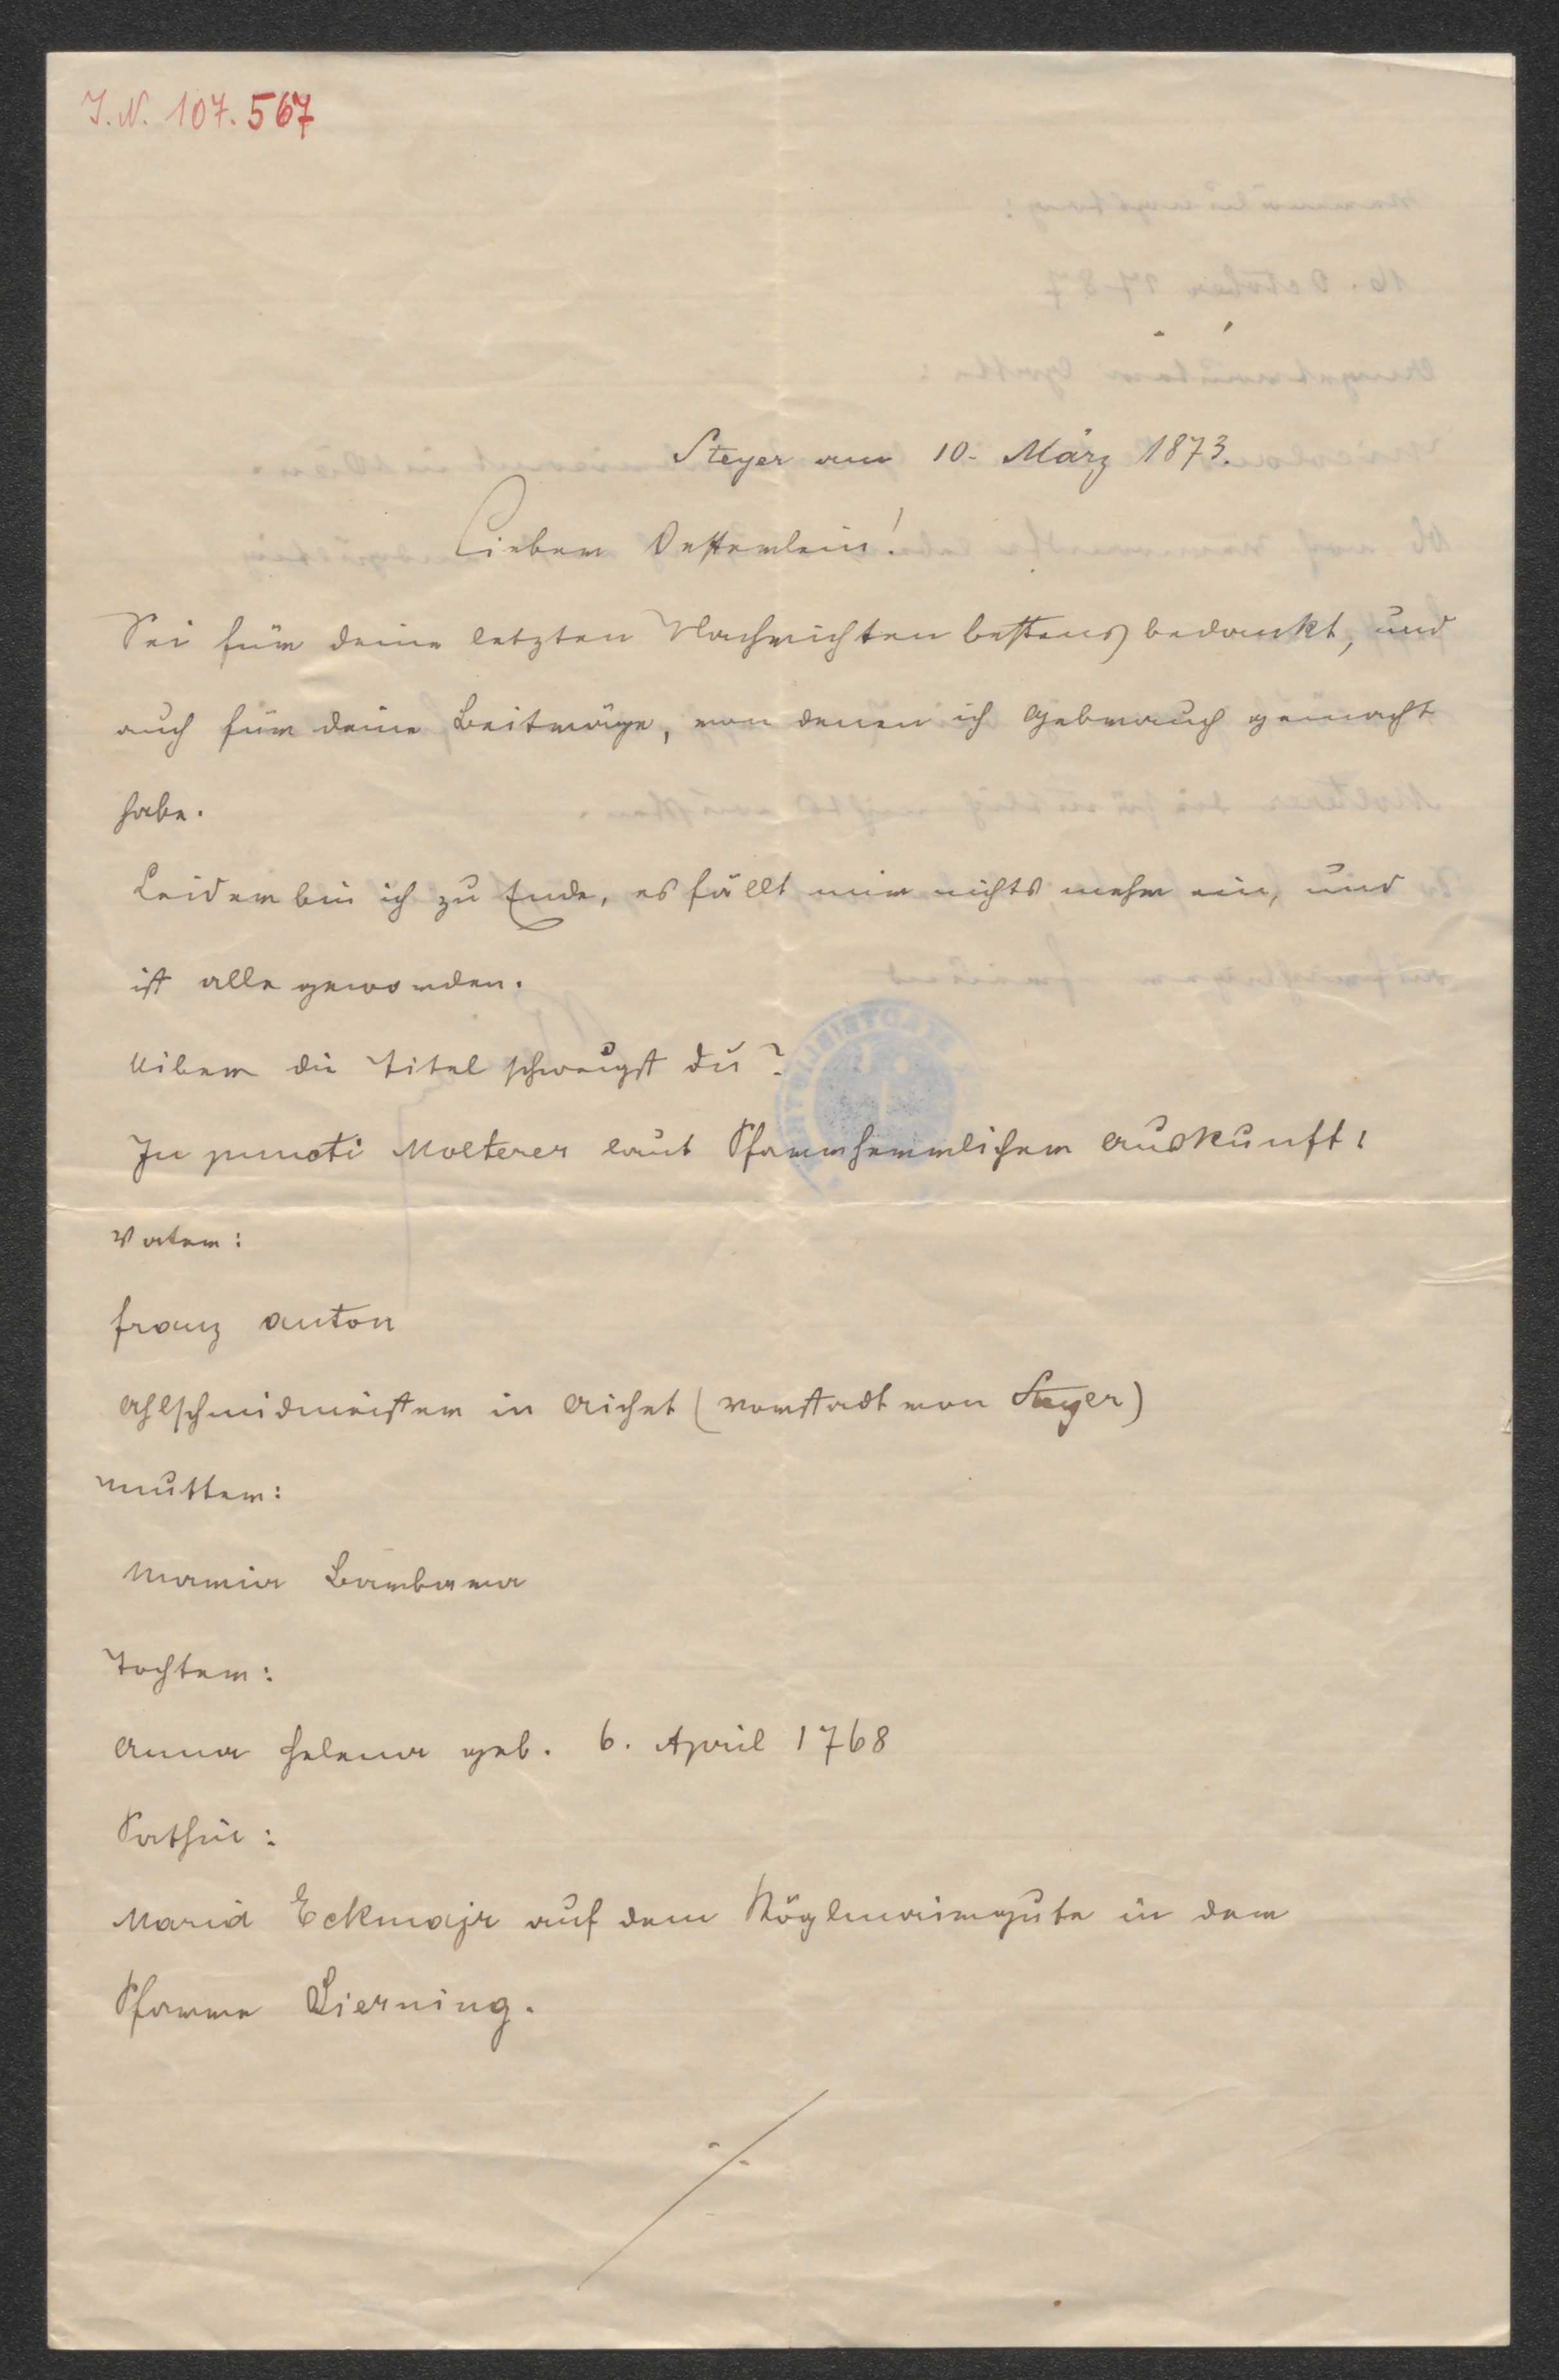 I.N. 107.567
Steyer am 10. März 1873.
Lieber Oesterlein!
Sei für deine letzten Nachrichten bestens bedankt, und
auch für deine Beiträge, von denen ich Gebrauch gemacht
habe.
Leider bin ich zu Ende, es fällt mir nichts mehr ein, und
ist alle geworden.
Uiber die Titel schweigst du?
In puncti Molterer laut Pfarrherrlicher Auskunft:
Vater:
Franz Anton
Ahlschmidmeister in Aichet (Vorstadt von Steyer)
Mutter:
Maria Barbara
Tochter:
Anna Helena geb. 6. April 1768
Pathin:
Maria Eckmajr auf dem Köglmairgute in der
Pfarre Sierning.
./.